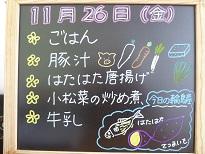 11月26日(金)
ごはん
豚汁
はたはた唐揚げ
小松菜の炒め煮、今日の輪島
牛乳
はたはた